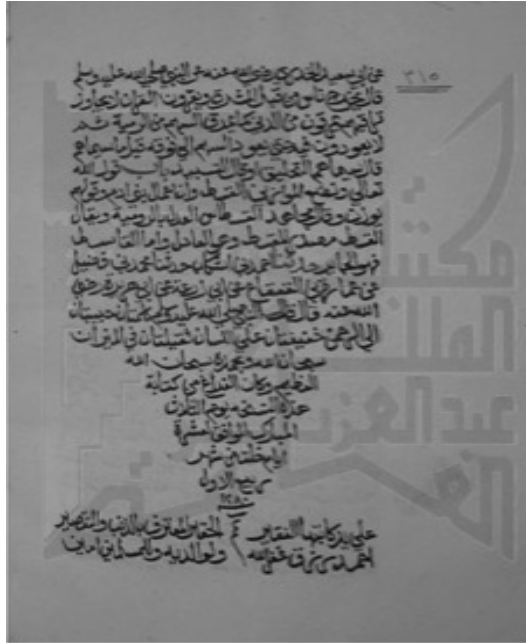 ٣١٥
عن ابي سعيد الخدري رضي الله عنه عن النبي صلى الله عليه وسلم
قال يخرج ناس من قبل المشرق ويقرون القران لا يجاوز
تراقيهم يمرقون من الدين كما يمرق السهم من الرمية ثم
لا يعودون فيه حتى يعود السهم الى فوقه قيل ما سيماهم
قال سيماهم التحليق او قال التسبيد باب قول الله
تعالى ونضع الموازين القسط وان اعمال بني ادم وقولهم
يوزن وقال مجاهد القسطاس العدل بالرومية ويقال
القسط مصدر المقسط وهو العادل واما القاسط
فهو الجائر حدثنا احمد بن اشكاب حدثنا محمد بن فضيل
عن عمارة بن القعقاع عن ابي زرعة عن ابي هريرة رضي
الله عنه قال قال النبي صلى الله عليه وسلم كلمتان حبيبتان
الى الرحمن خفيفتان على اللسان ثقيلتان في الميزان
سبحان الله وبحمده سبحان الله
العظيم وكان الفراغ من كتابة
هذه النسخة يوم الثلاث
المبارك الموافق لعشرة
ايام خلت من شهر
ربيع الاول
١٢٨٠
على يد كاتبها الفقير الحقير المعترف بالذنب والتقصير
احمد غفر الله له ولوالديه والمسلمين امين
مكتبة
الملك
عبد العزيز